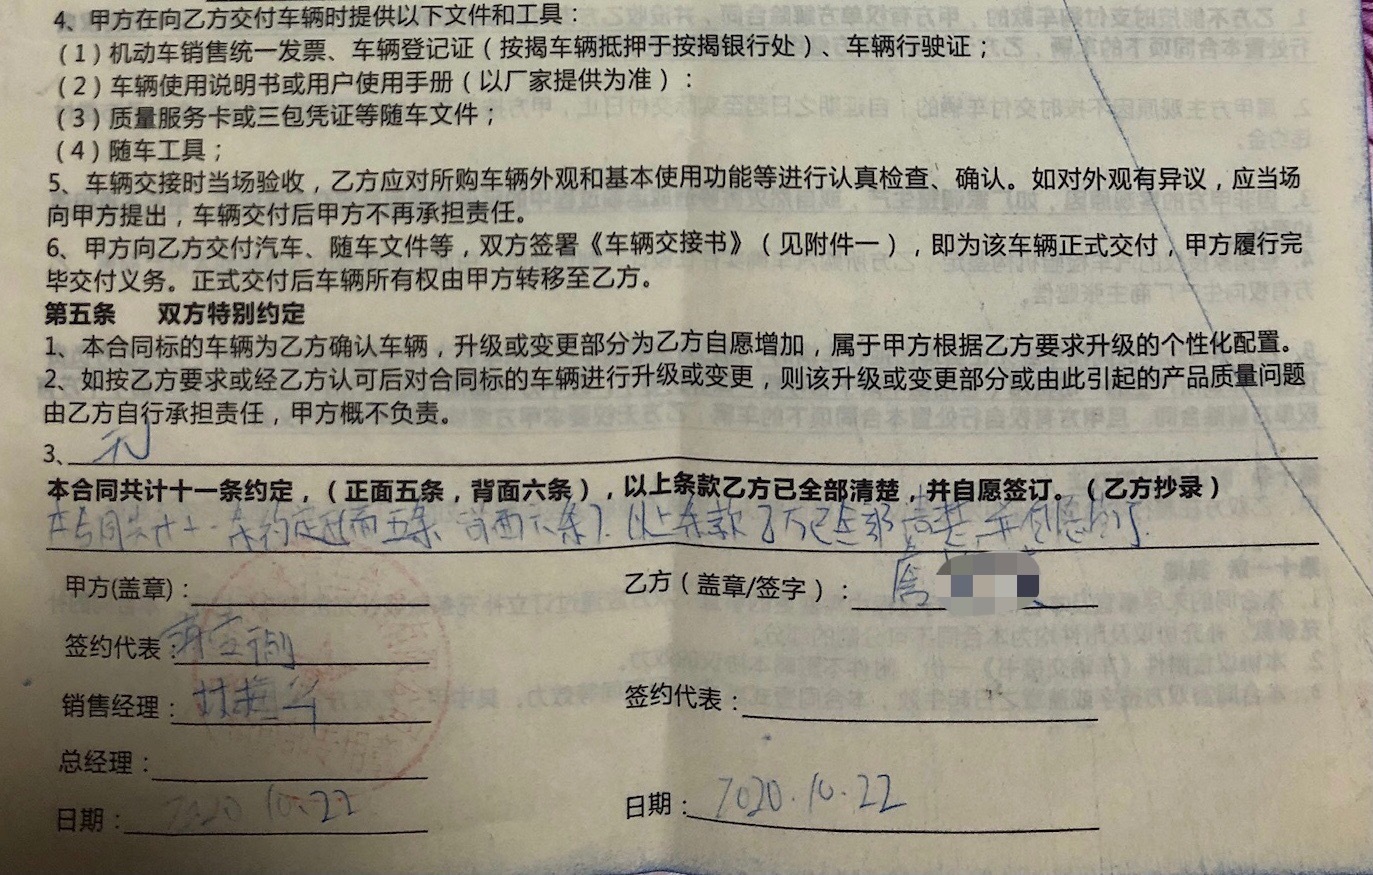 4、甲方在向乙方交付车辆时提供以下文件和工具：
（1）机动车销售统一发票、车辆登记证（按揭车辆抵押于按揭银行处）、车辆行驶证；
（2）车辆使用说明书或用户使用手册（以厂家提供为准）：
（3）质量服务卡或三包凭证等随车文件；
（4）随车工具；
5、车辆交接时当场验收，乙方应对所购车辆外观和基本使用功能等进行认真检查、确认。如对外观有异议，应当场
向甲方提出，车辆交付后甲方不再承担责任。
6、甲方向乙方交付汽车、随车文件等，双方签署《车辆交接书》（见附件一），即为该车辆正式交付，甲方履行完
毕交付义务。正式交付后车辆所有权由甲方转移至乙方。
第五条 双方特别约定
1、本合同标的车辆为乙方确认车辆，升级或变更部分为乙方自愿增加，属于甲方根据乙方要求升级的个性化配置。
2、如按乙方要求或经乙方认可后对合同标的车辆进行升级或变更，则该升级或变更部分或由此引起的产品质量问题
由乙方自行承担责任，甲方概不负责。
3、无
本合同共计十一条约定，（正面五条，背面六条），以上条款乙方已全部清楚，并自愿签订。（乙方抄录）
本合同共计十一条约定正面五条 背面六条）.以上条款乙方已全部清楚,并自愿签订.
甲方(盖章)： 乙方（盖章/签字）：
签约代表：
销售经理： 签约代表：
总经理：
日期：2020.10.22 日期：2020.10.22